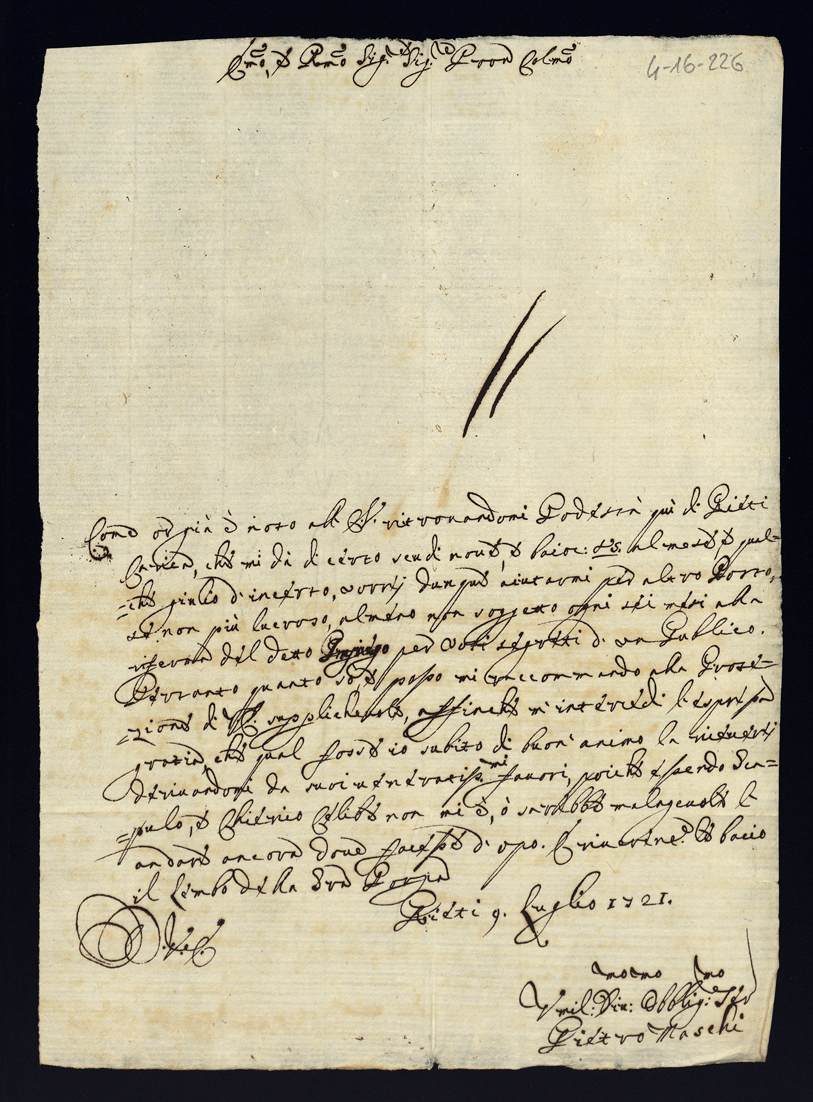 Emo, e Rmo Sig.r Sig.r e Pron Colmo
4-16-226
Come or già è noto all' E.V. ritrovandomi Podestà quì di Pieti
Carica, che mi dà di certo scudi nove, e baioc: 25 al mese, e qual=
=che giulio d'incerto, vorrei dunque aiutarmi per altro Posto,
se non più lucroso, almeno non soggetto ogni sei mesi alla
riferma del detto Impiego per voti segreti di un Publico.
Pertanto quanto sò, e posso mi raccommando alla Prote=
=zione di V.E. supplichevole, affinche m'interceda l'espressa
grazia, che qual fosse io subito di buon' animo la riceverei
derivandomi da suoi veneratiss.mi favori, poiche essendo Sca=
=pulo, e Chierico Celibe non mi è, ò sarebbe malagevole l'
andare ancora dove facesse d'uopo. E riverente le bacio
il Lembo della Sra Porpora
Pieti 9. Luglio 1721.
D.V.E.
Vmil:mo Div:mo Obblig:mo Ser
Pietro Maschi